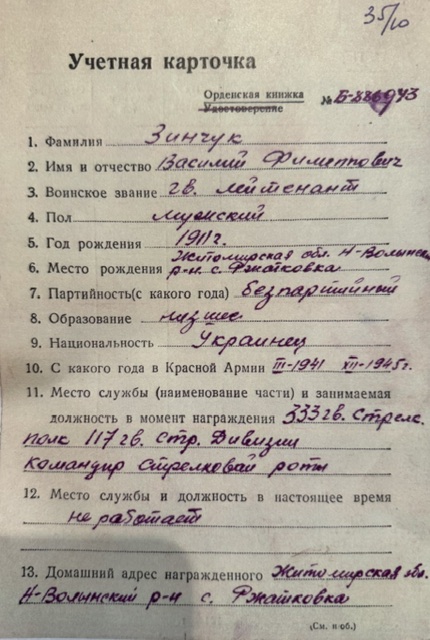 35/10
Учетная карточка
Орденская книжка
Удостоверение
№ Б-886943
1. Фамилия Зинчук
2. Имя и отчество Василий Филиппович
3. Воинское звание гв. лейтенант
4. Пол мужский
5. Год рождения 1911г.
Житомирская обл. Н-Волынск
6. Место рождения р-н с. Ржатковка
7. Партийность(с какого года) безпартийный
8. Образование низшее
9. Национальность Украинец
10. С какого года в Красной Армии III-1941 XII-1945г.
11. Место службы (наименование части) и занимаемая
должность в момент награждения 333 гв. Стрелк.
полк 117 гв. Стр. Дивизии
командир стрелковай роты
12. Место службы и должность в настоящее время
не работает
13. Домашний адрес награжденного Житомирская обл.
Н-Волынский р-н с. Ржатковка
(См. н об.)